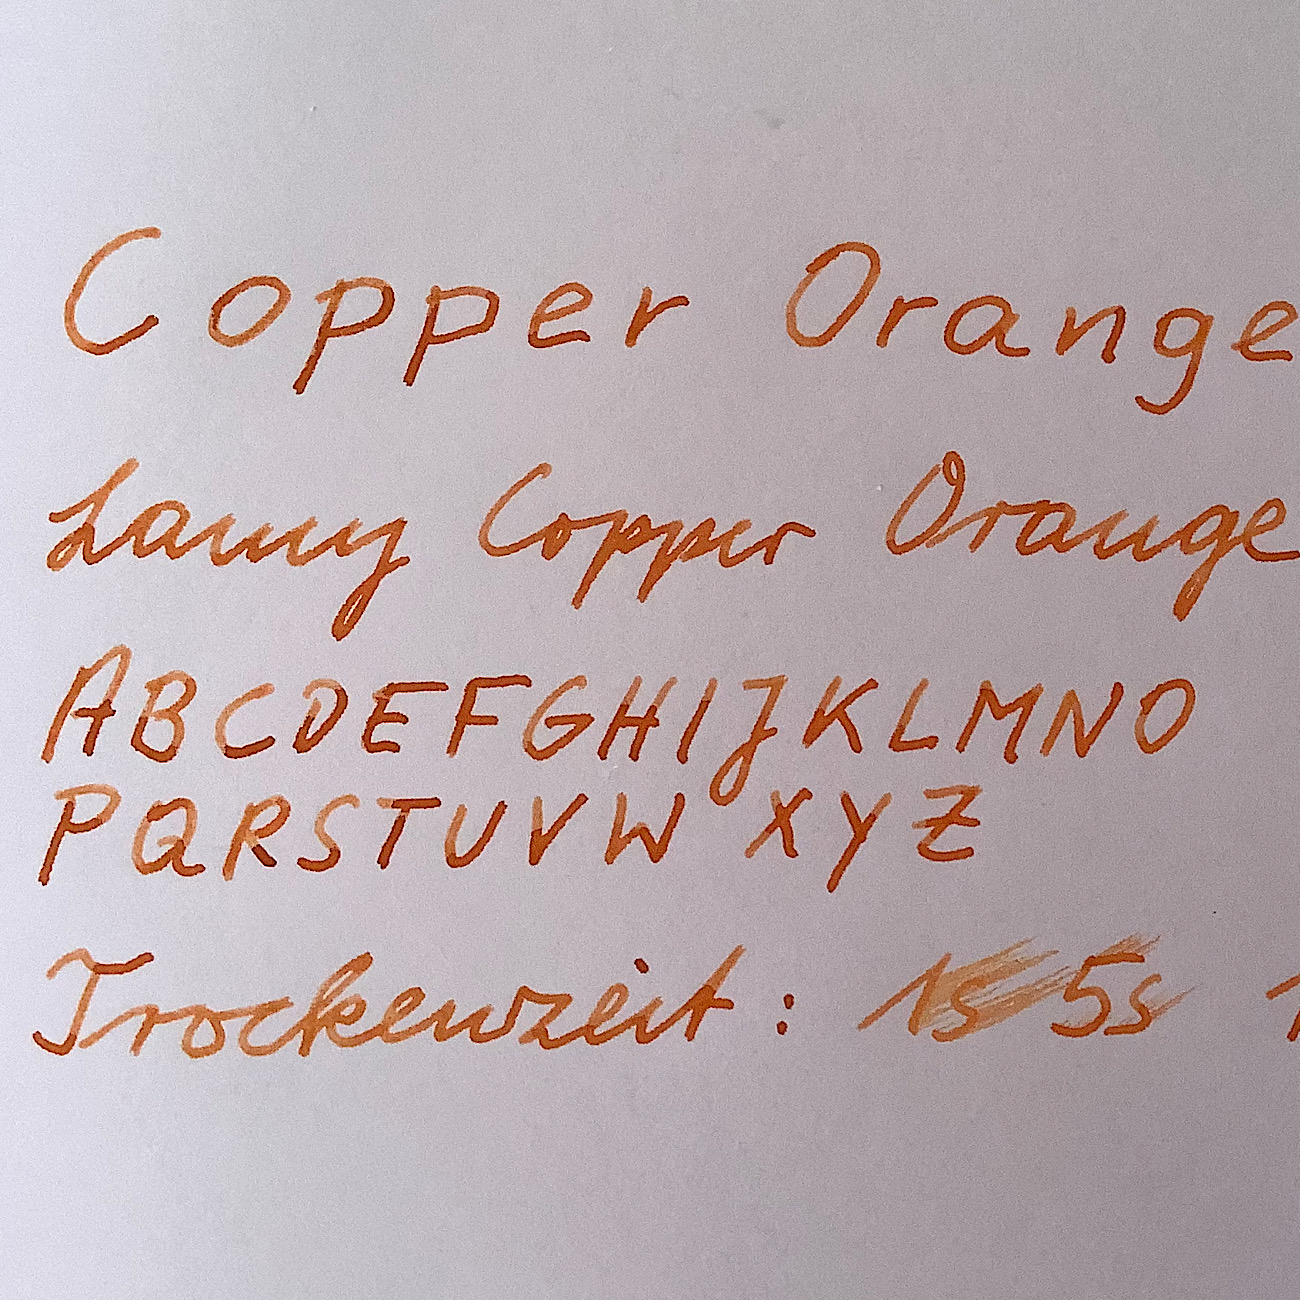 Copper Orange
Lamy Copper Orange
ABCDEFGHIJKLMNO
PQRSTUVW XYZ
Trockenzeit: 1s 5s 1